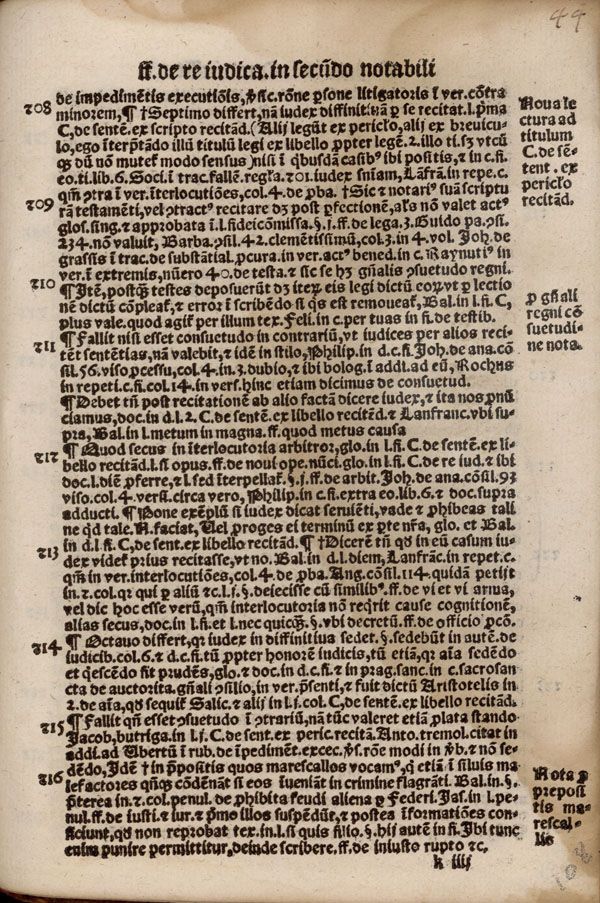 44
ff. de re iudica. in secũdo notabili
de impedimẽtis executiõis, ꝟsic. rõne ꝑsone litigatoris ĩ ver. cõtra
208 minorem, ¶ †Septimo differt, nã iudex diffinitiuã ꝑ se recitat. l. pꝛma
C, de sentẽ. ex scripto recitãd. (Alij legũt ex pericło, alij ex breuicu-
lo, ego ĩterp̃tãdo illũ titulũ legi ex libello ꝓpter legẽ. 2. illo ti. sꝫ vtcũ
qꝫ dũ nõ mutet᷑ modo sensus nisi ĩ q̃busdã casib⁹ ibi positis, ⁊ in c. fi.
eo. ti. lib. 6. Soci. ĩ trac. fallẽ. regła. 201. iudex sniam, Lãfrã. in repe. c.
qm̃ ↄ̃tra ĩ ver. ĩterlocutiões, col. 4. de ꝓba. †Sic ⁊ notari⁹ suã scriptu
209 rã testamẽti, vel ↄ̃tract⁹ recitare dꝫ post ꝑfectionẽ, ałs nõ valet act⁹
glos. sing. ⁊ approbata ĩ l. fideicõmissa. §. j. ff. de lega. 3. Guido pa. ↄ̃si.
234. nõ valuit, Barba. ↄ̃sil. 42. clemẽtissimũ, col. 3. in 4. vol. Joh. de
grassis ĩ trac. de substãtial. ꝓcura. in ver. act⁹ bened. in c. Raynuti⁹ in
ver. ĩ extremis, nũero 40. de testa. ⁊ sic se hꝫ gñalis ↄ̃suetudo regni.
210 ¶ Jtẽ, postqꝫ testes deposuerũt dꝫ iteꝝ eis legi dictũ eoꝝ vt ꝑ lectio
nẽ dictũ cõpleat᷑, ⁊ error ĩ scribẽdo si q̃s est remoueat᷑, Bal. in l. fi. C,
plus vale. quod agit᷑ per illum tex. Feli. in c. per tuas in fi. de testib.
¶ Fallit nisi esset consuetudo in contrariũ, vt iudices per alios reci-
211 tẽt sentẽtias, nã valebit, ⁊ idẽ in stilo, Philip. in d. c. fi. Joh. de ana. cõ
sil. 56. viso ꝓcessu, col. 4. in 3. dubio, ⁊ ibi bolog. ĩ addi. ad eũ, Rochus
in repeti. c. fi. col. 14. in vers. hinc etiam dicimus de consuetud.
¶ Debet tñ post recitationẽ ab alio factã dicere iudex, ⁊ ita nos ꝓnũ
ciamus, doc. in d. l. 2. C. de sentẽ. ex libello recitẽd. ⁊ Lanfranc. vbi su-
pra, Bal. in l. metum in magna. ff. quod metus causa
212 ¶ Quod secus in ĩterlocutoria arbitror, glo. in l. fi. C. de sentẽ. ex li-
bello recitãd. l. si opus. ff. de noui ope. nũci. glo. in l. fi. C. de re iud. ⁊ ibi
doc. l. diẽ ꝓferre, ⁊ l. sed ĩterpellat᷑. §. j. ff. de arbit. Joh. de ana. cõsil. 93
viso. col. 4. versi. circa vero, Philip. in c. fi. extra eo. lib. 6. ⁊ doc. supra
adducti. ¶ Pone exẽplũ si iudex dicat seruiẽti, vade ⁊ ꝓhibeas tali
ne qd̃ tale. N. faciat, Uel ꝓroges ei terminũ ex ꝑte nr̃a, glo. et Bal.
in d. l. fi. C, de sent. ex libello recitãd. ¶ †Dicerẽ tñ qd̃ in eũ casum iu-
213 dex videt᷑ prius recitasse, vt no. Bal. in d. l. diem, Lanfrãc. in repet. c.
qm̃ in ver. interlocutiões, col. 4. de ꝓba. Ang. cõsil. 114. quidã petijt
in. 2. col. qr̃ qui ꝑ aliũ ⁊c. l. j. §. deiecisse cũ similib⁹. ff. de vi et vi arma,
vel dic hoc esse verũ, qm̃ interlocutoria nõ reqrit cause cognitionẽ,
alias secus, doc. in l. fi. et l. nec quicqꝫ. §. vbi decretũ. ff. de officio ꝓcõ.
214 ¶ Octauo differt, qr̃ iudex in diffinitiua sedet. §. sedebũt in autẽ. de
iudicib. col. 6. ⁊ d. c. fi. tũ ꝓpter honorẽ iudicis, tũ etiã, qr̃ aĩa sedẽdo
et q̃escẽdo fit prudẽs, glo. ⁊ doc. in d. c. fi. ⁊ in prag. sanc. in c. sacrosan
cta de auctorita. gñali ↄ̃silio, in ver. p̃senti, ⁊ fuit dictũ Aristotelis in
2. de aĩa, qd̃ sequit᷑ Salic. ⁊ alij in l. j. col. C, de sentẽ. ex libello recitãd.
215 ¶ Fallit qñ esset ↄ̃suetudo ĩ ↄ̃trariũ, nã tũc valeret etiã plata stando
Jacob, butriga. in l. j. C, de sent. ex peric. recitã. Anto. tremol. citat in
addi. ad Ubertũ ĩ rub. de ĩpedimẽt. excec. ꝟs. rõe modi in ꝟb. ⁊ nõ se-
dẽdo, Jdẽ † in p̃positis quos marescallos vocam⁹, q̃ etiã ĩ siluis ma
216 lefactores qñqꝫ cõdẽnãt si eos ĩueniãt in crimine flagrãti. Bal. in. §.
p̃terea in. 2. col. penul. de ꝓhibita feudi aliena ꝑ Federi. Jas. in l. pe-
nul. ff. de iusti. ⁊ iur. ⁊ p̃mo illos suspẽdũt, ⁊ postea ĩformatiões con-
ficiunt, qd̃ non reprobat tex. in. l. si quis filio. §. hij autẽ in fi. Jbi tunc
enim punire permittitur, deinde scribere. ff. de iniusto rupto ⁊c.
k iiij
Noua le
ctura ad
titulum
C. de sẽ-
tent. ex
pericło
recitãd.
ꝓ gñali
regni cõ
suetudi-
ne nota.
Nota ꝓ
preposi
tis ma-
rescal-
lis